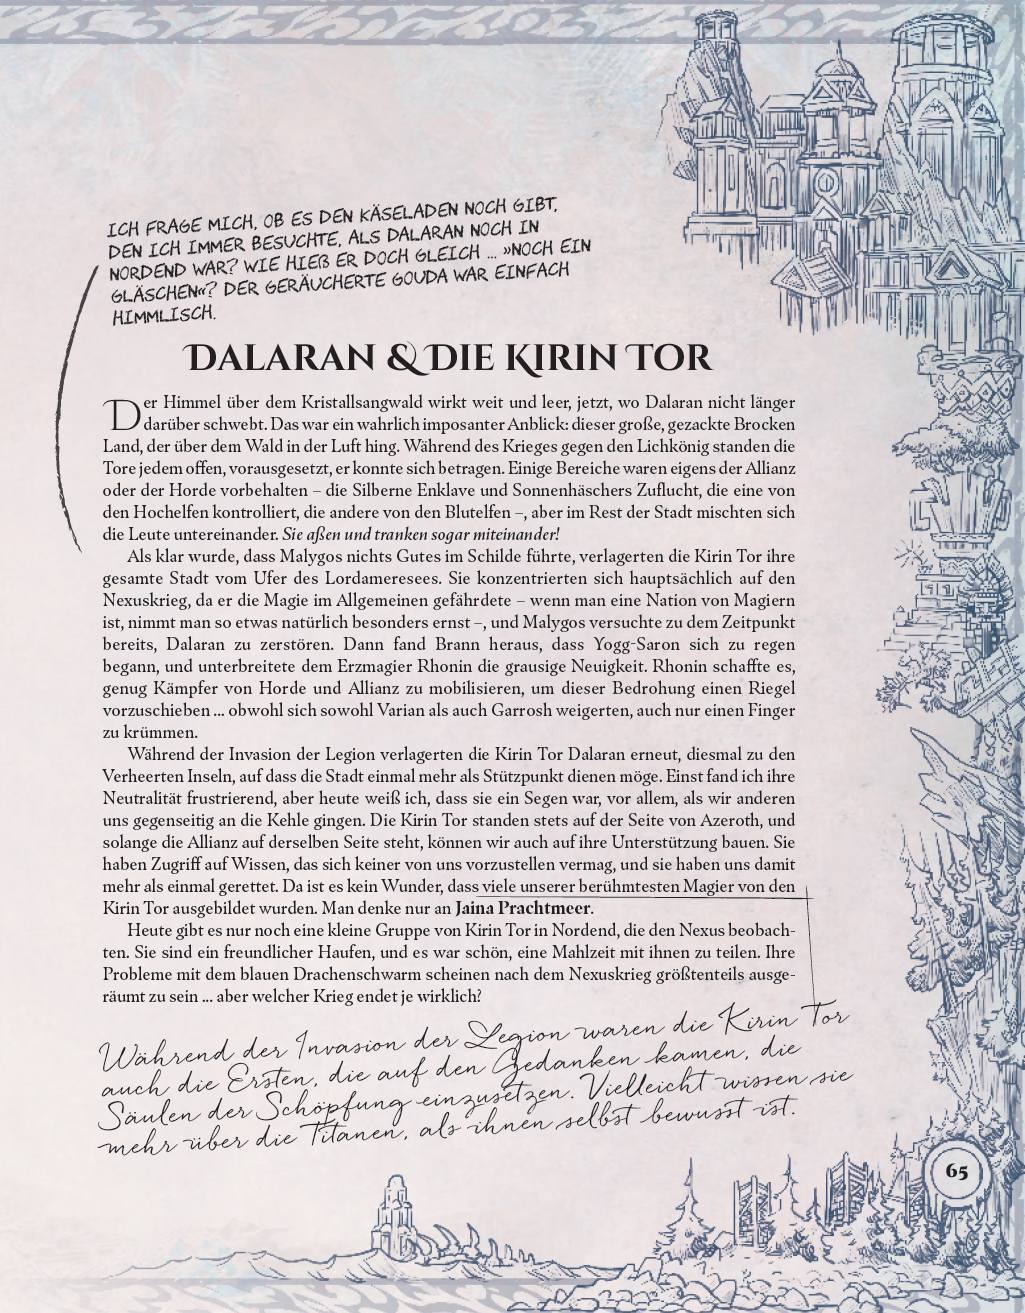 ICH FRAGE MICH, OB ES DEN KÄSELADEN NOCH GIBT,
DEN ICH IMMER BESUCHTE, ALS DALARAN NOCH IN
NORDEND WAR? WIE HIEẞ ER DOCH GLEICH ... »NOCH EIN
GLÄSCHEN«? DER GERÄUCHERTE GOUDA WAR EINFACH
HIMMLISCH.
DALARAN & DIE KIRIN TOR
Der Himmel über dem Kristallsangwald wirkt weit und leer, jetzt, wo Dalaran nicht länger
darüber schwebt. Das war ein wahrlich imposanter Anblick: dieser große, gezackte Brocken
Land, der über dem Wald in der Luft hing. Während des Krieges gegen den Lichkönig standen die
Tore jedem offen, vorausgesetzt, er konnte sich betragen. Einige Bereiche waren eigens der Allianz
oder der Horde vorbehalten – die Silberne Enklave und Sonnenhäschers Zuflucht, die eine von
den Hochelfen kontrolliert, die andere von den Blutelfen –, aber im Rest der Stadt mischten sich
die Leute untereinander. Sie aßen und tranken sogar miteinander!
Als klar wurde, dass Malygos nichts Gutes im Schilde führte, verlagerten die Kirin Tor ihre
gesamte Stadt vom Ufer des Lordameresees. Sie konzentrierten sich hauptsächlich auf den
Nexuskrieg, da er die Magie im Allgemeinen gefährdete – wenn man eine Nation von Magiern
ist, nimmt man so etwas natürlich besonders ernst –, und Malygos versuchte zu dem Zeitpunkt
bereits, Dalaran zu zerstören. Dann fand Brann heraus, dass Yogg-Saron sich zu regen
begann, und unterbreitete dem Erzmagier Rhonin die grausige Neuigkeit. Rhonin schaffte es,
genug Kämpfer von Horde und Allianz zu mobilisieren, um dieser Bedrohung einen Riegel
vorzuschieben ... obwohl sich sowohl Varian als auch Garrosh weigerten, auch nur einen Finger
zu krümmen.
Während der Invasion der Legion verlagerten die Kirin Tor Dalaran erneut, diesmal zu den
Verheerten Inseln, auf dass die Stadt einmal mehr als Stützpunkt dienen möge. Einst fand ich ihre
Neutralität frustrierend, aber heute weiß ich, dass sie ein Segen war, vor allem, als wir anderen
uns gegenseitig an die Kehle gingen. Die Kirin Tor standen stets auf der Seite von Azeroth, und
solange die Allianz auf derselben Seite steht, können wir auch auf ihre Unterstützung bauen. Sie
haben Zugriff auf Wissen, das sich keiner von uns vorzustellen vermag, und sie haben uns damit
mehr als einmal gerettet. Da ist es kein Wunder, dass viele unserer berühmtesten Magier von den
Kirin Tor ausgebildet wurden. Man denke nur an Jaina Prachtmeer.
Heute gibt es nur noch eine kleine Gruppe von Kirin Tor in Nordend, die den Nexus beobach-
ten. Sie sind ein freundlicher Haufen, und es war schön, eine Mahlzeit mit ihnen zu teilen. Ihre
Probleme mit dem blauen Drachenschwarm scheinen nach dem Nexuskrieg größtenteils ausge-
räumt zu sein ... aber welcher Krieg endet je wirklich?
Während der Invasion der Legion waren die Kirin Tor
auch die Ersten, die auf den Gedanken kamen, die
Säulen der Schöpfung einzusetzen. Vielleicht wissen sie
mehr über die Titanen, als ihnen selbst bewusst ist.
65